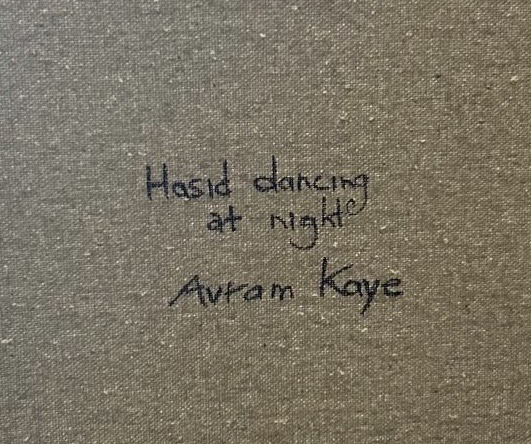 Hasid dancing
at night
Avram Kaye